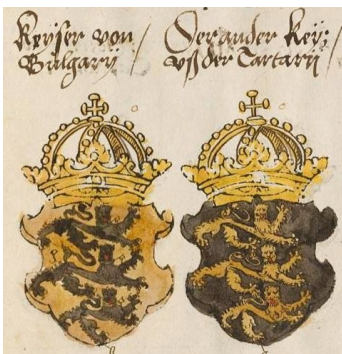 Keyser von /
Bulgarÿ
Der ander Key:
vß der Tartarÿ /